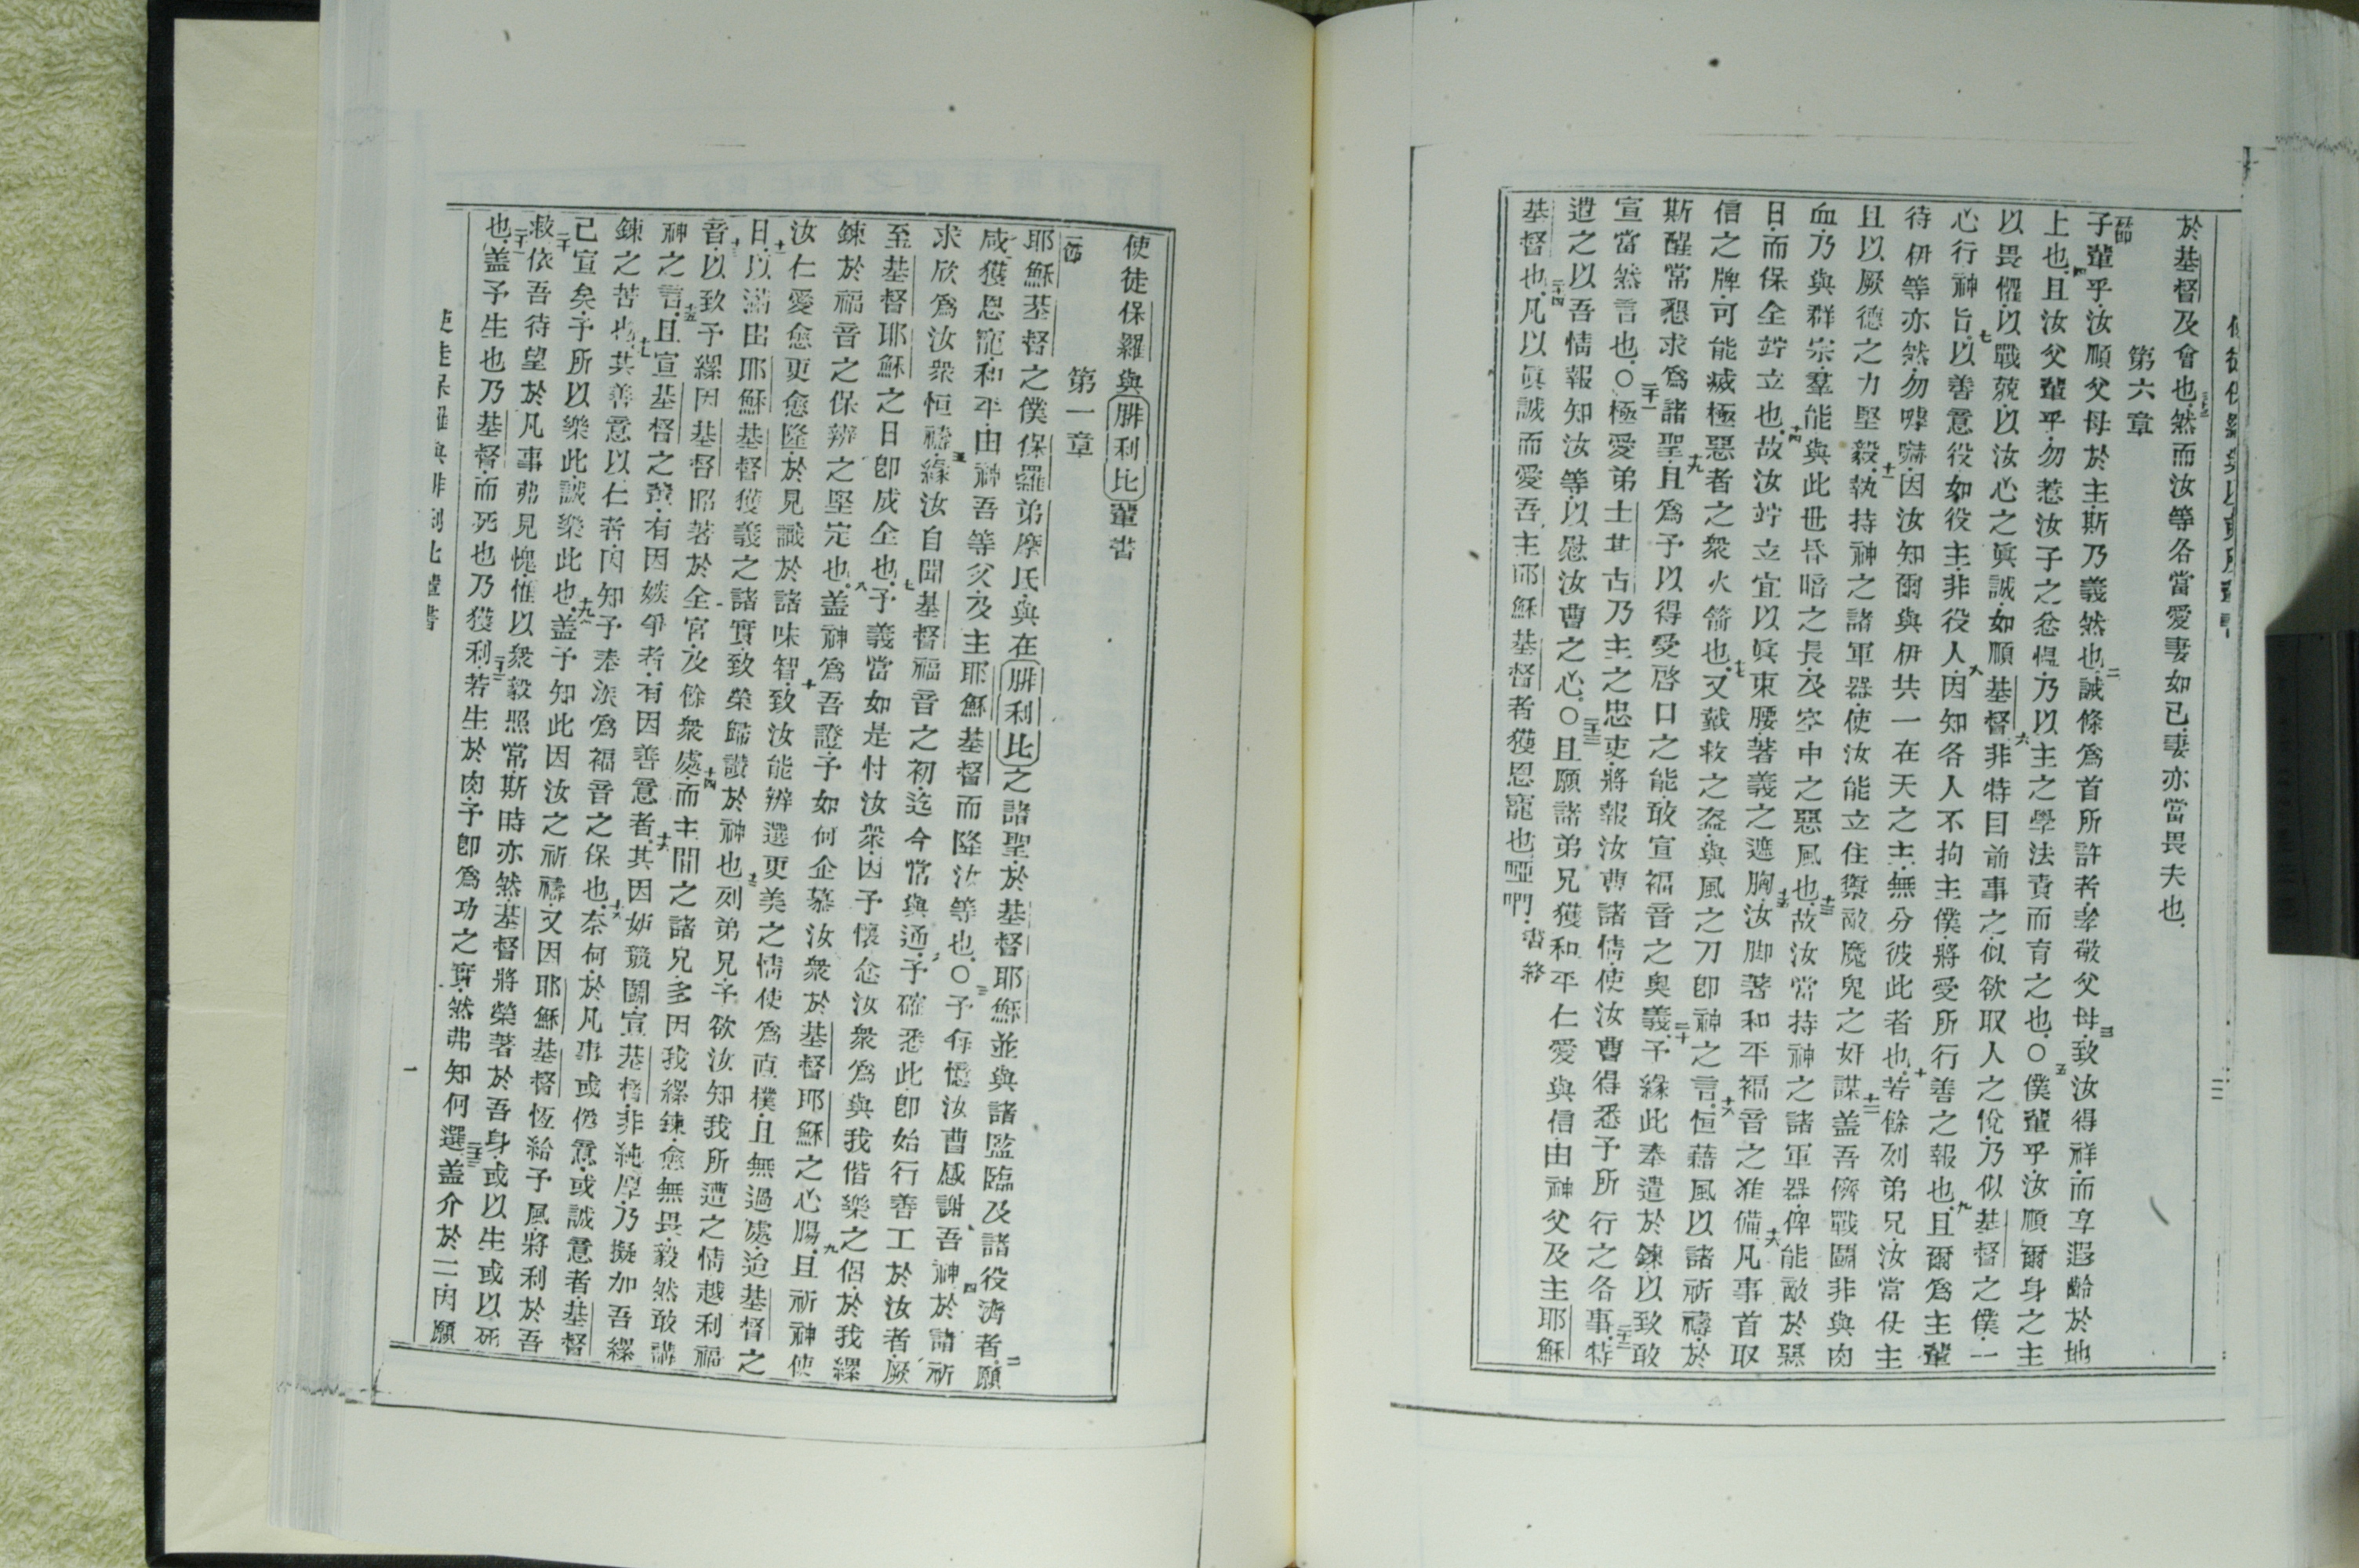 於基督及會也然而汝等各當愛妻如己妻亦當畏夫也
第六章
子輩乎汝順父母於主斯乃義然也誡條爲首所許者孝敬父母致汝得祥而享遐齡於地
上也且汝父輩乎勿惹汝子之忿慍乃以主之學法責而育之也〇僕輩乎汝順爾身之主
以畏懼以戰兢以汝心之眞誠如順基督非特目前事之似欲取人之悅乃似基督之僕一
心行神旨以善意役如役主非役人因知各人不拘主僕將受所行善之報也且爾爲主輩
待伊等亦然勿嘑嚇因汝知爾與伊共一在天之主無分彼此者也若餘列弟兄汝當仗主
且以厥德之力堅毅執持神之諸軍器使汝能立住禦敵魔鬼之奸謀盖吾儕戰鬬非與肉
血乃與群宗羣能與此世昏暗之長及空中之惡風也故汝當持神之諸軍器俾能敵於惡
日而保全竚立也故汝竚立宜以眞束腰著義之遮胸汝脚著和平福音之准備凡事首取
信之牌可能滅極惡者之衆火箭也又戴救之盔與風之刀卽神之言恒藉風以諸祈禱於
斯醒常懇求爲諸聖且爲予以得受啓口之能敢宣福音之奥義予緣此奉遣於鍊以致敢
宣當然言也〇極愛弟士其古乃主之忠吏將報汝曹諸情使汝曹得悉予所行之各事特
遣之以吾情報知汝等以慰汝曹之心〇且願諸弟兄獲和平仁愛與信由神父及主耶穌
基督也凡以眞誠而愛吾主耶穌基督者獲恩寵也啞啊 書終
使徒保羅與腓利比輩書
第一章
耶穌基督之僕保羅弟摩氏與在腓利比之諸聖於基督耶穌並與諸監臨及諸役濟者願
咸獲恩寵和平由神吾等父及主耶穌基督而降汝等也〇予每憶汝曹感謝吾神於諸祈
求欣爲汝衆恒禱緣汝自聞基督福音之初迄今當與通予確悉此卽始行善工於汝者厥
至基督耶穌之日卽成全也予義當如是忖汝衆因予懷念汝衆爲與我偕樂之侶於我縲
鍊於福音之保辨之堅定也盖神爲吾證予如何企慕汝衆於基督耶穌之心腸且祈神使
汝仁愛愈更愈隆於見識於諸味智致汝能辨選更美之情使爲直樸且無過處迨基督之
日以滿出耶穌基督獲義之諸實致榮歸讚於神也列弟兄予欲汝知我所遭之情越利福
音以致予縲因基督昭著於全宮及餘衆處而主間之諸兄多因我縲鍊愈無畏毅然敢講
神之言且宣基督之䝿有因嫉爭者有因善意者其因妬競鬬宣基督非純厚乃擬加吾縲
鍊之苦也其善意以仁者因知予奉派爲福音之保也奈何於凡事或僞意或誠意者基督
已宣矣予所以樂此誠樂此也盖予知此因汝之祈禱又因耶穌基督恆給予風將利於吾
救依吾待望於凡事弗見愧惟以衆毅照常斯時亦然基督將榮著於吾身或以生或以死
也盖予生也乃基督而死也乃獲利若生於肉予卽爲功之實然弗知何選盖介於二因願
使徒保羅與腓利比輩書
一